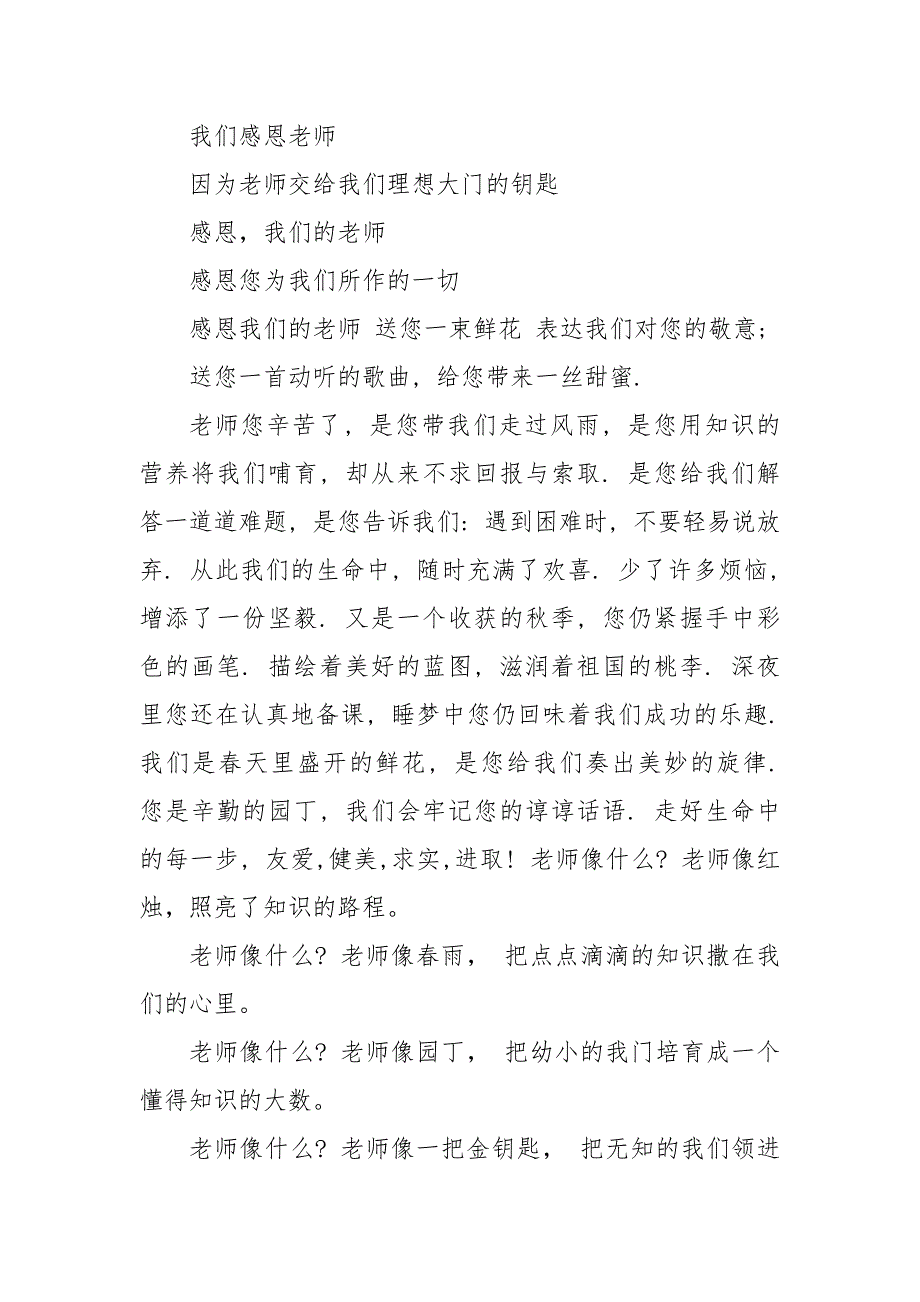 我们感恩老师
因为老师交给我们理想大门的钥匙
感恩，我们的老师
感恩您为我们所作的一切
感恩我们的老师 送您一束鲜花 表达我们对您的敬意；
送您一首动听的歌曲，给您带来一丝甜蜜．
老师您辛苦了，是您带我们走过风雨，是您用知识的
营养将我们哺育，却从来不求回报与索取．是您给我们解
答一道道难题，是您告诉我们：遇到困难时，不要轻易说放
弃．从此我们的生命中，随时充满了欢喜．少了许多烦恼，
增添了一份坚毅．又是一个收获的秋季，您仍紧握手中彩
色的画笔．描绘着美好的蓝图，滋润着祖国的桃李．深夜
里您还在认真地备课，睡梦中您仍回味着我们成功的乐趣．
我们是春天里盛开的鲜花，是您给我们奏出美妙的旋律．
您是辛勤的园丁，我们会牢记您的谆谆话语．走好生命中
的每一步，友爱,健美,求实,进取！老师像什么？老师像红
烛，照亮了知识的路程。
老师像什么？老师像春雨， 把点点滴滴的知识撒在我
们的心里。
老师像什么？老师像园丁， 把幼小的我门培育成一个
懂得知识的大数。
老师像什么？老师像一把金钥匙， 把无知的我们领进